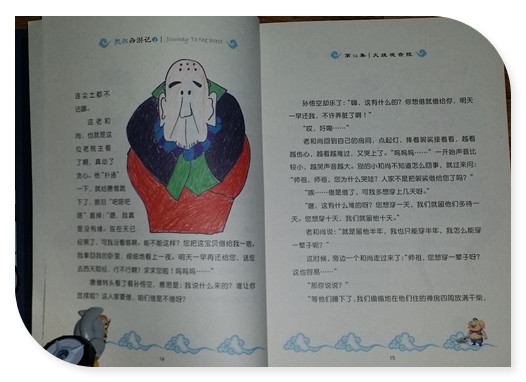 西游记 | Journey to the West
连尘土都不
沾雅。
这老和
尚，也就是这
位老院主看
了啊，真动了
贪心。他"扑通"
一下，就给唐僧跪
下了，眼泪"吧嗒吧
嗒"直掉："嗯，我真
是没有缘，现在天已
经黑了，可我没看够啊。能不能这样？您把这宝贝借给我一宿，
我拿回我的卧室，细细地看上一夜。明天一早再还给您，送您
去西天取经，行不行啊？求求您啦！呜呜呜……"
唐僧转头看了看孙悟空，意思是：我说什么来的？谁让你
显摆啦？这人家要借，咱们借是不借呀？
14
第14集 | 火烧观音院
孙悟空却乐了："嗨，这有什么的？你想借就借给你，明天
一早还我，不许弄脏了啊！"
"哎，好嘞……"
老和尚回到自己的房间，点起灯，捧着袈裟接着看，越看
越伤心，越看越难过，又哭上了。"呜呜呜……"一开始声音比
较小，越哭声音越大。别的小和尚不知道怎么回事，就过来问：
"师祖，师祖，您为什么哭哇？人家不是把袈裟借给您了吗？"
"唉……借是借了，可我多想穿上几天呀。"
"嗯，这有什么难的呀？您想穿一天，我们就留他们多待一
天。您想穿十天，我们就留他十天。"
老和尚说："就是留他半年，我也只能穿半年，我怎么能穿
一辈子呢？"
这时候，旁边一个和尚走过来了："师祖，您想穿一辈子呀？
这也容易……"
"那你说说？"
"等他们睡下了，我们偷偷地在他们住的禅房四周放满干柴，
15